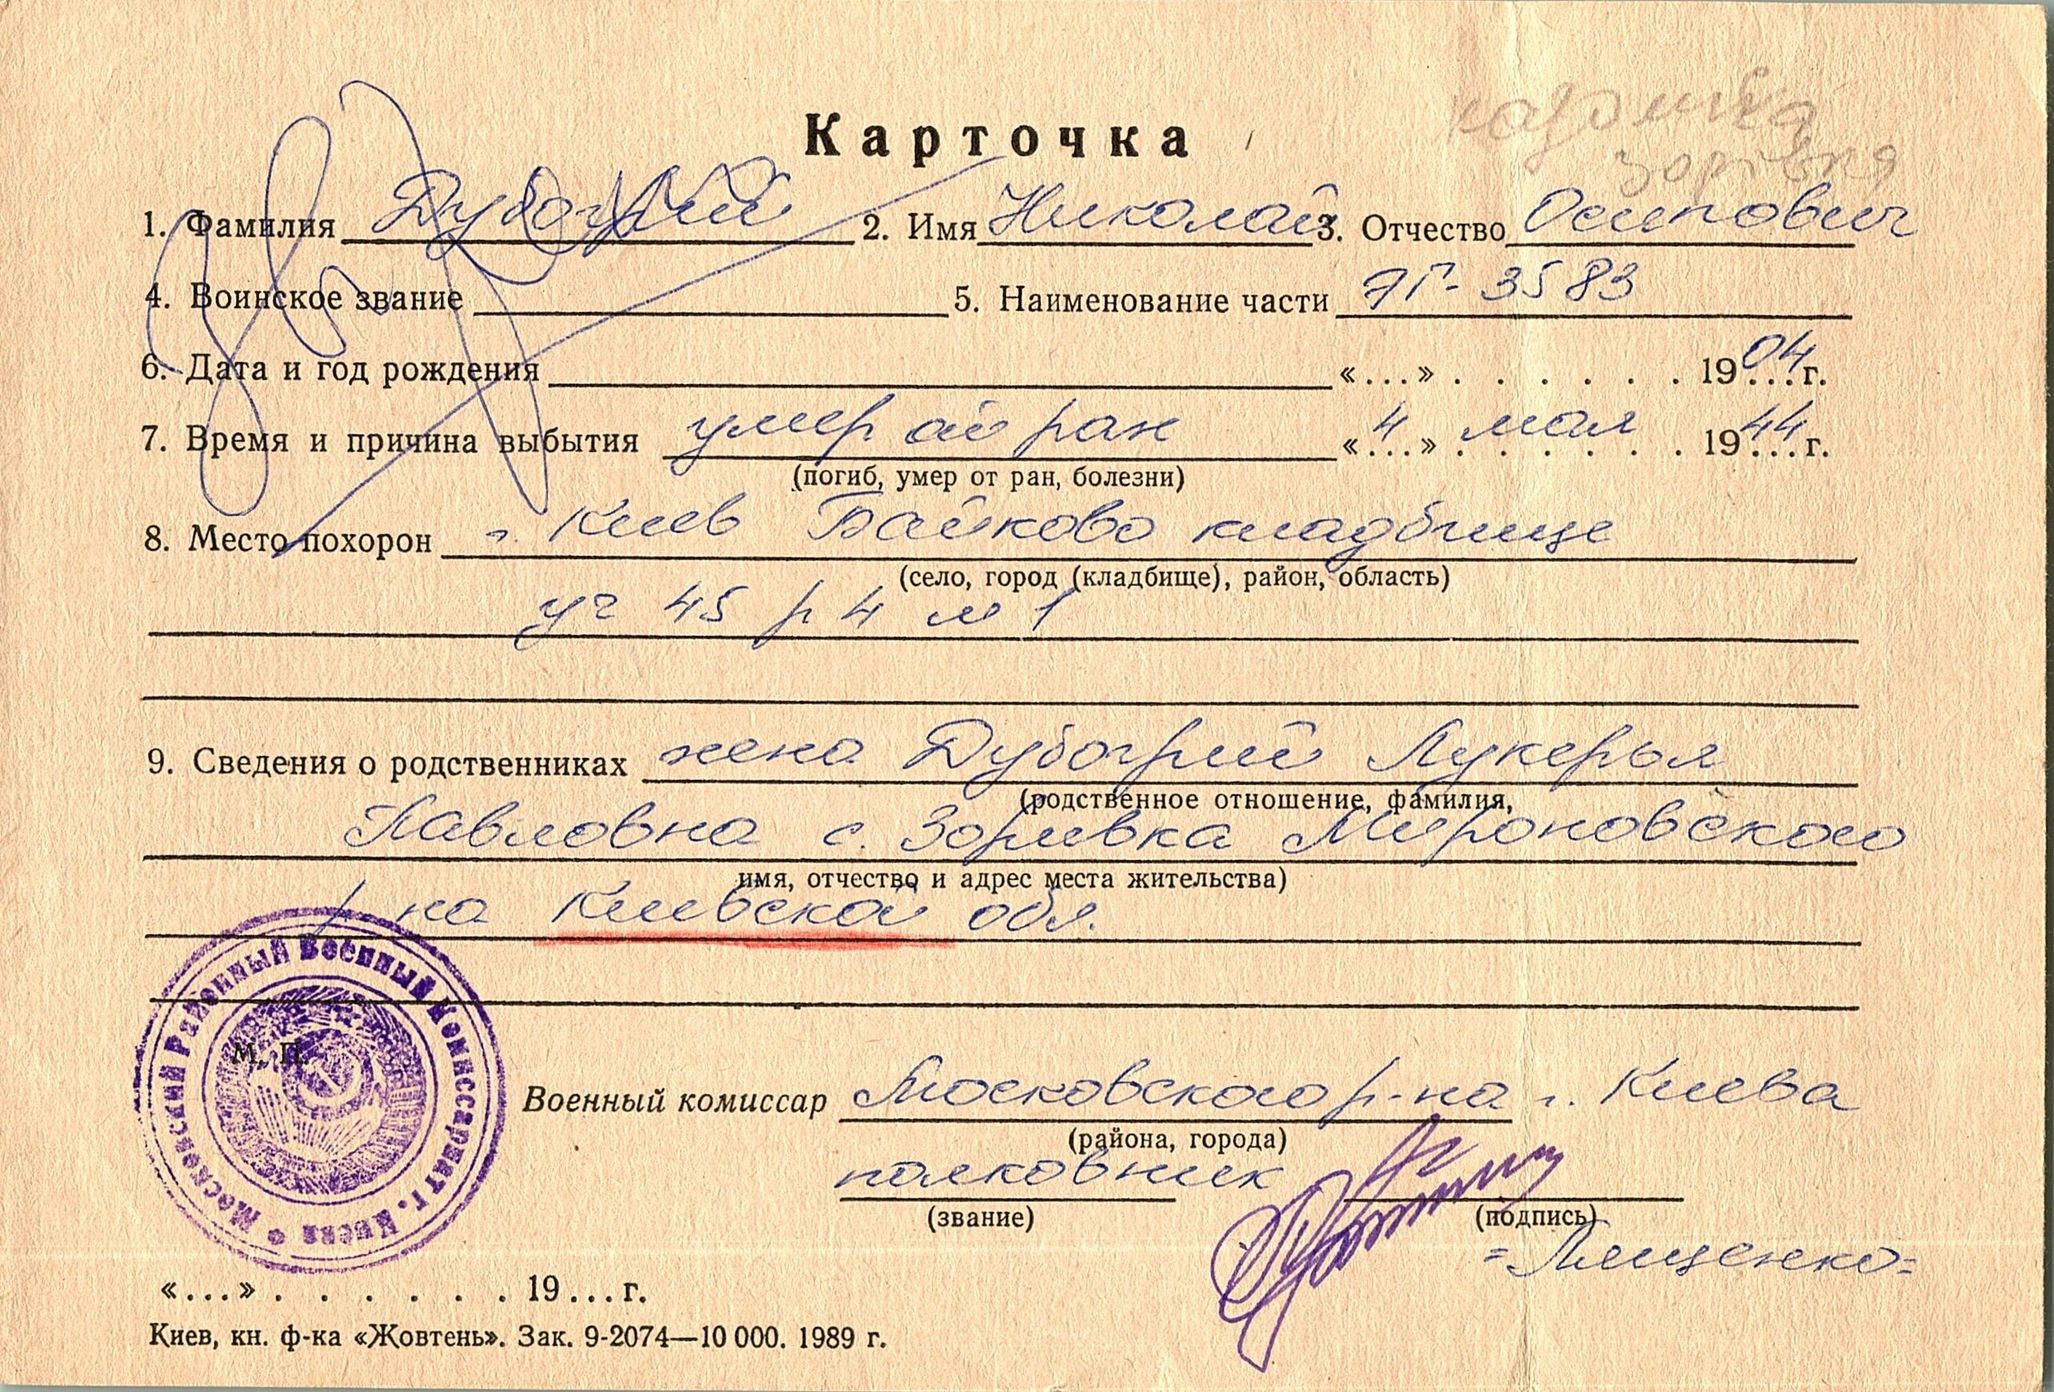 Карточка
1. Фамилия Дубогрий 2. Имя Николай 3. Отчество Осипович
4. Воинское звание 5. Наименование части ЭГ-3583
6. Дата и год рождения «...» . . . . . . 1904 г.
7. Время и причина выбытия умер от ран «4» мая 1944 г.
(погиб, умер от ран, болезни)
8. Место похорон г. Киев Байково кладбище
(село, город (кладбище), район, область)
уч 45 р 4 м 1
9. Сведения о родственниках жена Дубогрий Лукерья
(родственное отношение, фамилия,
Павловна с. Зоривка Мироновского
имя, отчество и адрес места жительства)
р-на Киевской обл.
Московский Районный Военный Комиссариат г. Киева
М. П.
Военный комиссар Московского р-на г. Киева
(района, города)
полковник
(звание) (подпись)
=Лященко=
«...» . . . . . . 19...г.
Киев, кн. ф-ка «Жовтень». Зак. 9-2074—10 000. 1989 г.